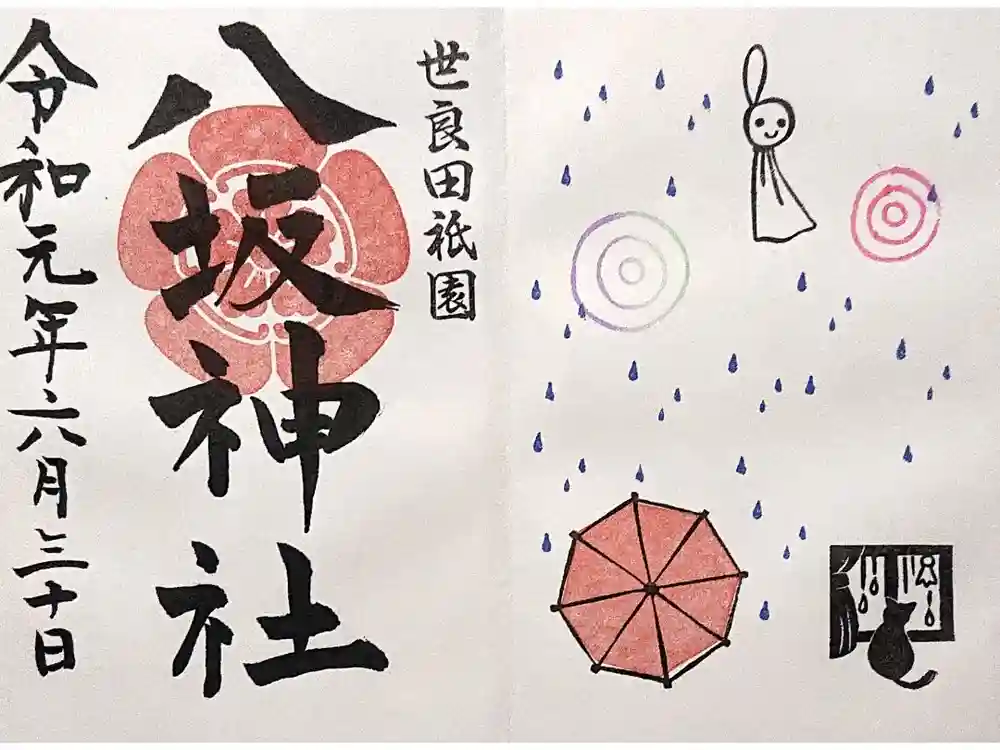 世良田祇園
八坂神社
令和元年六月三十日